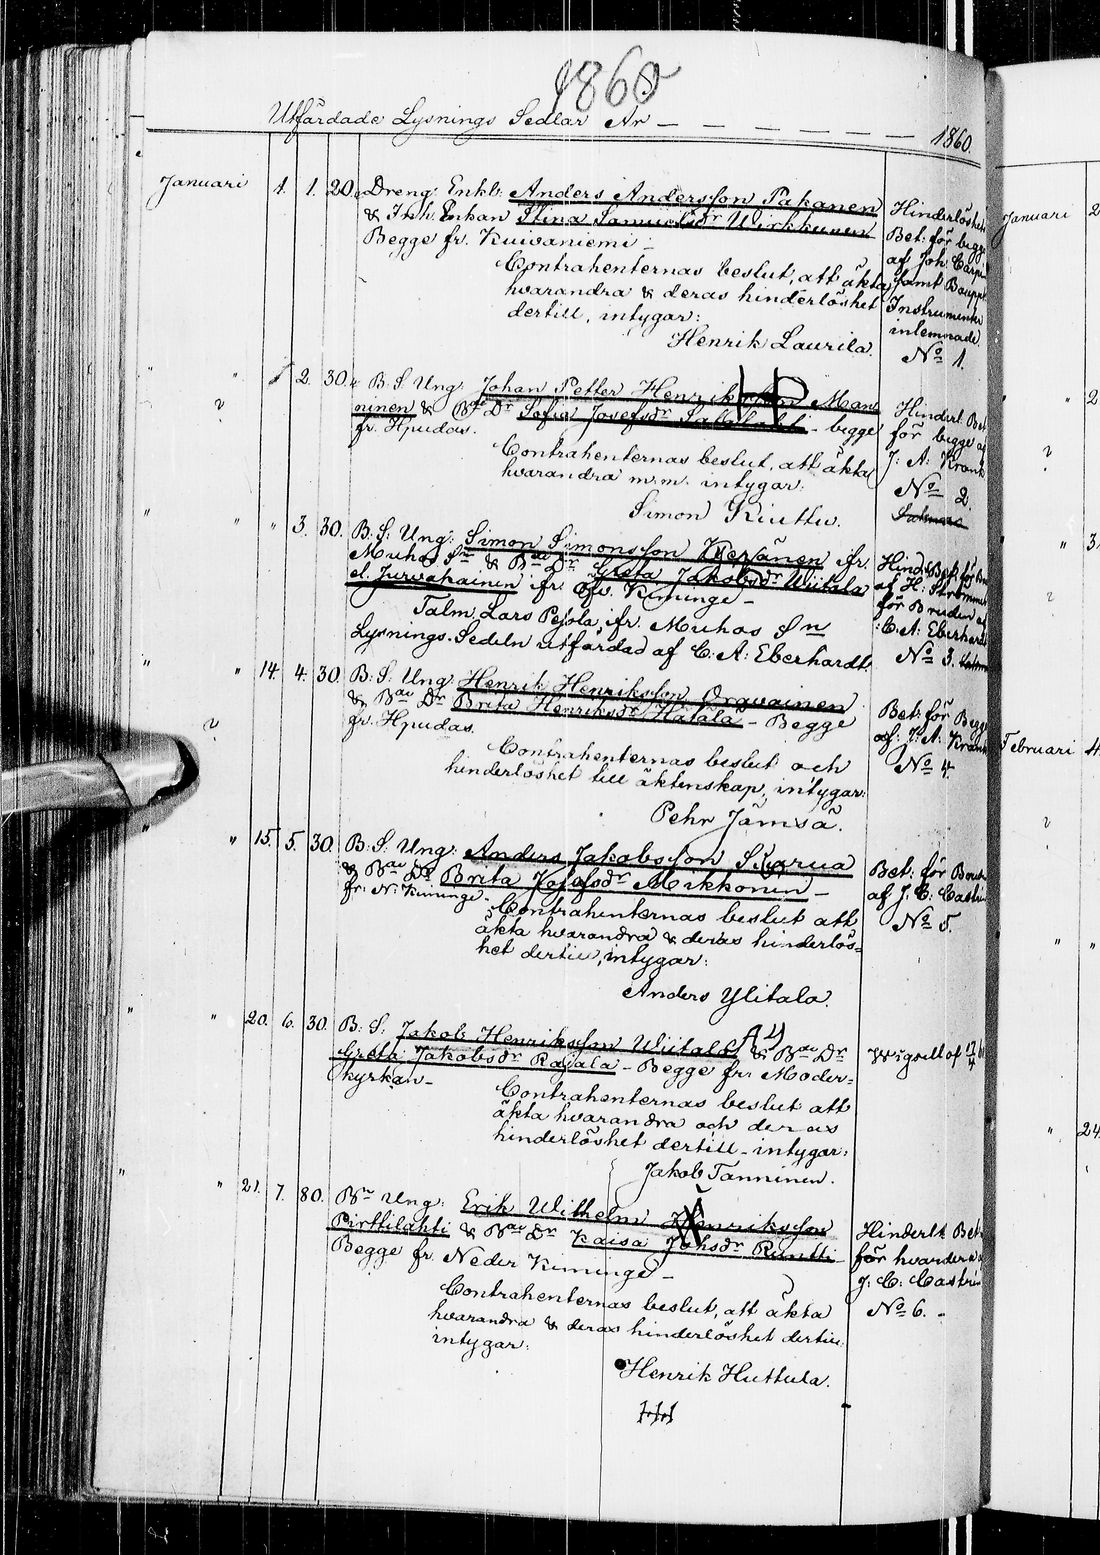 1860
Utfärdade Lysnings Sedlar År — 1860.
Januari 1. 1. 20. Dreng: Enkl: Anders Andersson Pakanen
& Inh. Enkan Stina Samuelsdr Wirkkunen
Begge fr. Kuivaniemi —
Contrahenternas beslut, att äkta
hvarandra & deras hinderlöshet
dertill, intygar:
Henrik Laurila.
Hinderlöshets
Bet: för begge
af Joh. Carp
samt Bouppt
Instrumente
inlemnade.
No 1.
" " 2. 30. B. S. Ung: Johan Petter Henriksson Man
ninen & Bde Dr Sofia Josefsdr — begge
fr. Hpudas.
Contrahenternas beslut, att äkta
hvarandra m.m. intygar:
Simon Kiuttu.
Hinderl. Bet
för begge af
J. A. Krank
No 2.
" " " 3. 30. B: S: Ung: Simon Simonsson Keränen ifr.
Muhos Sn & Bde Dr Greta Jakobsdr Wiitala
el. Jurvakainen ifr. Öfv. Kiminge —
Talm. Lars Pesola, ifr. Muhos Sn
Lysnings-Sedeln utfärdad af C: A: Eberhardt.
af H. Strömmer
för Bruden af
C. A: Eberhardt
No 3.
" 14. 4. 30. B: S: Ung: Henrik Henriksson Oravainen
& Bde Dr Brita Henriksdr Hätälä — Begge
fr. Hpudas
Contrahenternas beslut och
hinderlöshet till äktenskap, intygar:
Pehr Jämsä.
Bet: för Begge
af J: A: Krank
No 4.
" 15. 5. 30. B: S: Ung: Anders Jakobsson Skarua
& Bde Dr Brita Josefsdr Mikkonen —
fr: N: Kiminge —
Contrahenternas beslut att
äkta hvarandra & deras hinderlös=
het dertill, intygar:
Anders Ylitalo.
Bet: för Bruden
af J. C: Castrén
No 5.
" 20. 6. 30. B: S: Jakob Henriksson Wiitala & Bde Dr
Greta Jakobsdr Rajala — Begge fr: Moder=
kyrkan —
Contrahenternas beslut att
äkta hvarandra och deras
hinderlöshet dertill — intygar:
Jakob Tanninen.
Wigselt af 17/4
" 21. 7. 80. Bde Ung: Erik Wilhelm Henriksson
Pirttilahti & Bde Dr Kaisa Johsdr Runtti
Begge fr Neder Kiminge —
Contrahenternas beslut, att äkta
hvarandra & deras hinderlöshet dertill
intygar:
Henrik Huttula.
Hinderlt Bet
för hvardera
J: C: Castrén
No 6. —
Januari
Februari
24